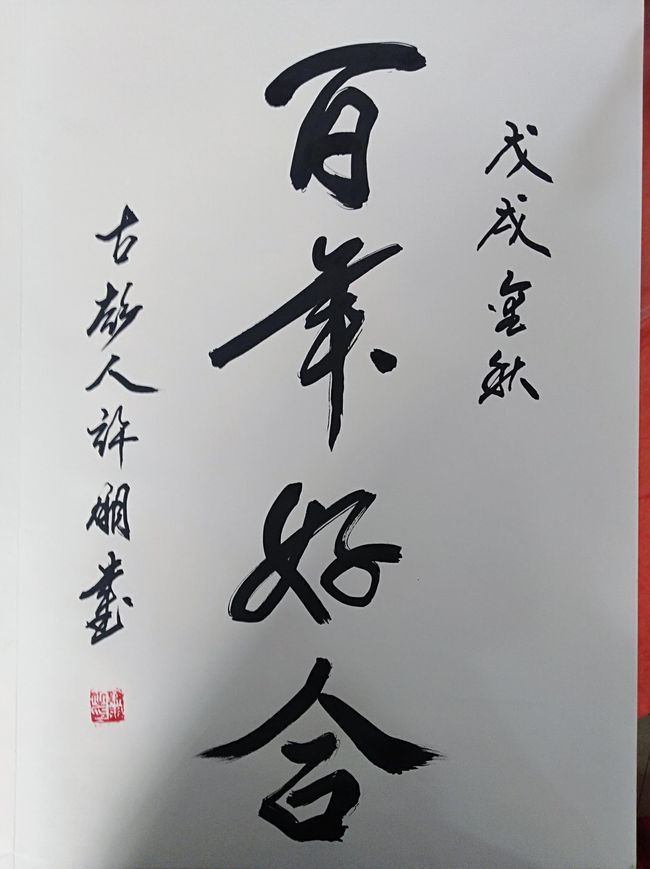 戊戌金秋
百年好合
古彭人許